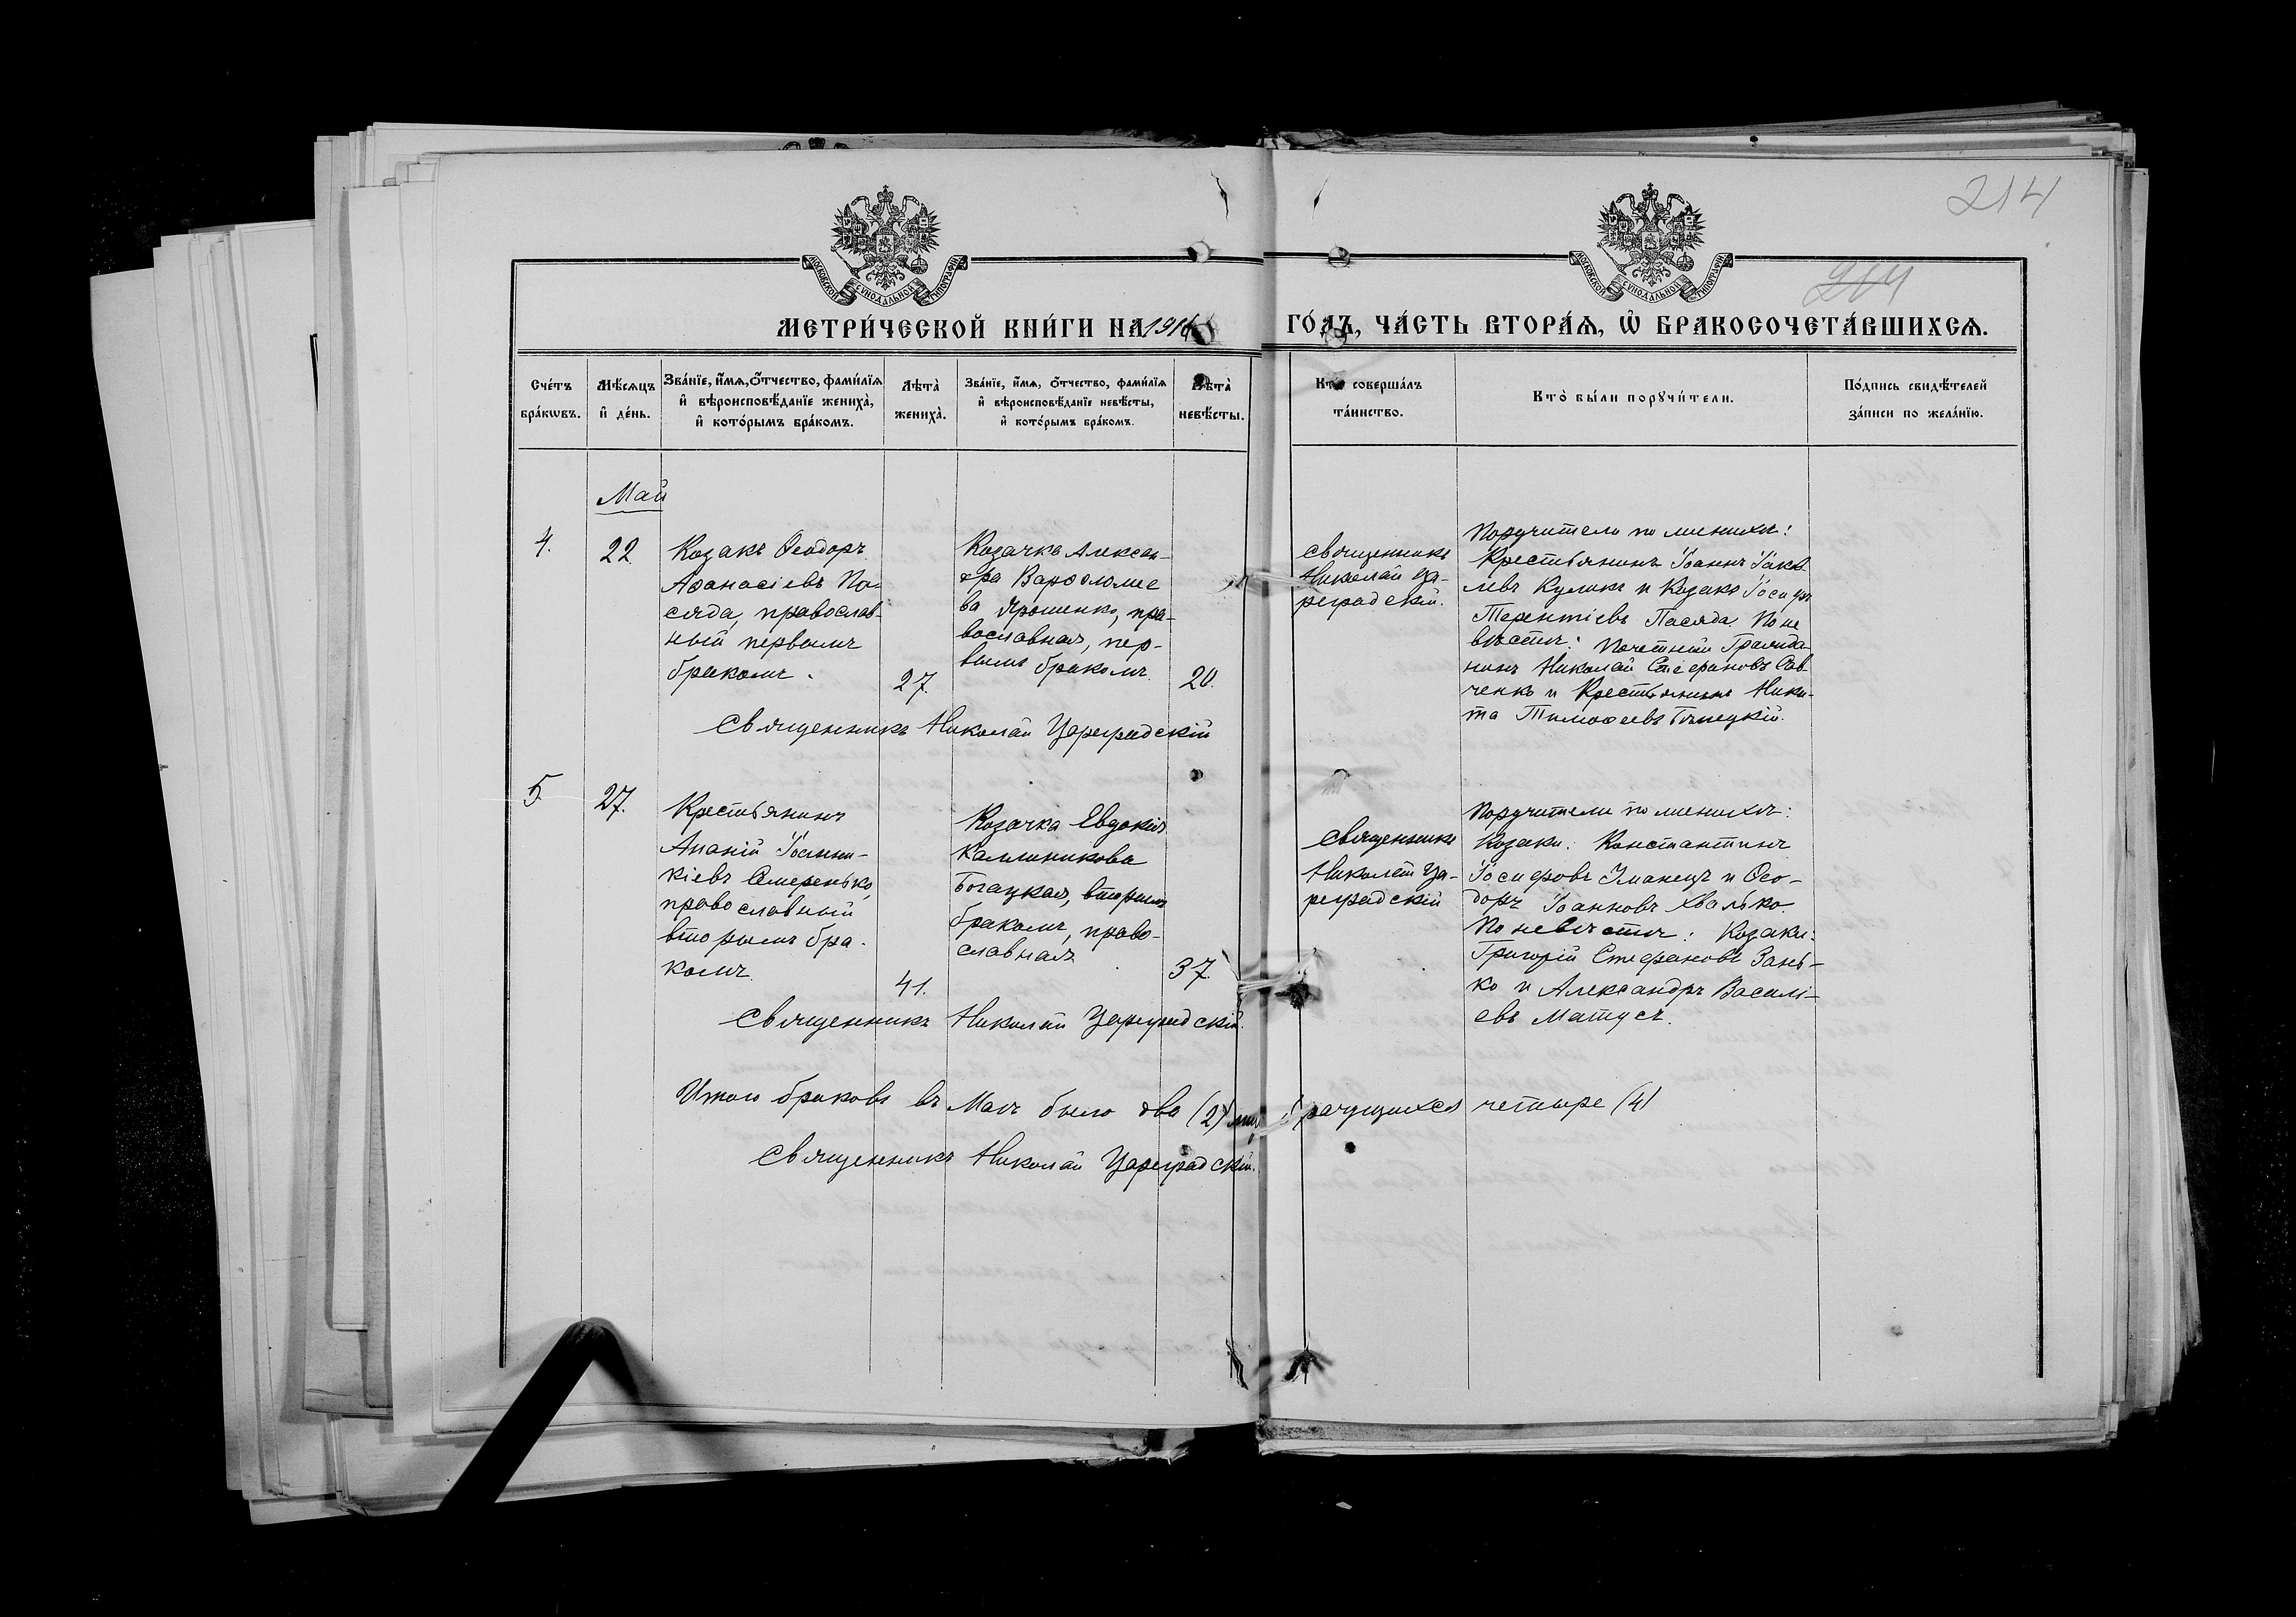 214
214
МОСКОВСКОЙ СѴНОДАЛЬНОЙ ТИПОГРАФІИ
МОСКОВСКОЙ СѴНОДАЛЬНОЙ ТИПОГРАФІИ
МЕТРИ́ЧЕСКОЙ КНИ́ГИ НА 191 ГО́ДЪ, ЧА́СТЬ ВТОРА́Ѧ, Ѡ҆ БРАКОСОЧЕТА́ВШИХСѦ.
Сче́тъ бра́кѡвъ.
Мѣ́сяцъ и҆ де́нь.
Зва́нїе, и҆́мя, ѻ҆́тчество, фами́лїя
и҆ вѣроисповѣ́данїе жениха̀,
и҆ кото́рымъ бра́комъ.
Лѣта̀ жениха̀.
Зва́нїе, и҆́мя, ѻ҆́тчество, фами́лїя
и҆ вѣроисповѣ́данїе невѣ́сты,
и҆ кото́рымъ бра́комъ.
Лѣта̀ невѣ́сты.
Кто̀ соверша́лъ
та́инство.
Кто̀ бы́ли порꙋчи́тели.
По́дпись свидѣ́телей
за́писи по жела́нїю.
Май
4.
22
Козакъ Ѳеодоръ
Аѳанасіевъ По-
сяда, православ-
ный первымъ
бракомъ.
27.
Козачка Алексан-
дра Варѳоломее
ва Ярошенко, пра-
вославная, пер-
вымъ бракомъ.
20.
Священникъ
Николай Ца-
реградскій.
Поручители по женихѣ:
Крестьянинъ Іоаннъ Іаков
левъ Куликъ и Козакъ Іосифъ
Терентіевъ Посяда По не
вѣстѣ: Почетный Гражда
нинъ Николай Стефановъ Сав
ченко и Крестьянинъ Ники-
та Тимоѳеевъ
Священникъ Николай Цареградскій
5.
27.
Крестьянинъ
Ананій Іоанни-
кіевъ Семеренько,
православный
вторымъ бра-
комъ.
41.
Козачка Евдокія
Каллиникова
Богацкая, вторымъ
бракомъ, право-
славная
37.
Священникъ
Николай Ца-
реградскій
Поручители по женихѣ:
Козаки: Константинъ
Іосифовъ Иманецъ и Ѳео-
доръ Іоанновъ Хвалько.
По невѣстѣ: Козаки:
Григорій Стефановъ Зань-
ко и Александръ Василі-
евъ Матусъ.
Священникъ Николай Цареградскій.
Итого браковъ въ Маѣ было два (2) четыре (4)
Священникъ Николай Цареградскій.